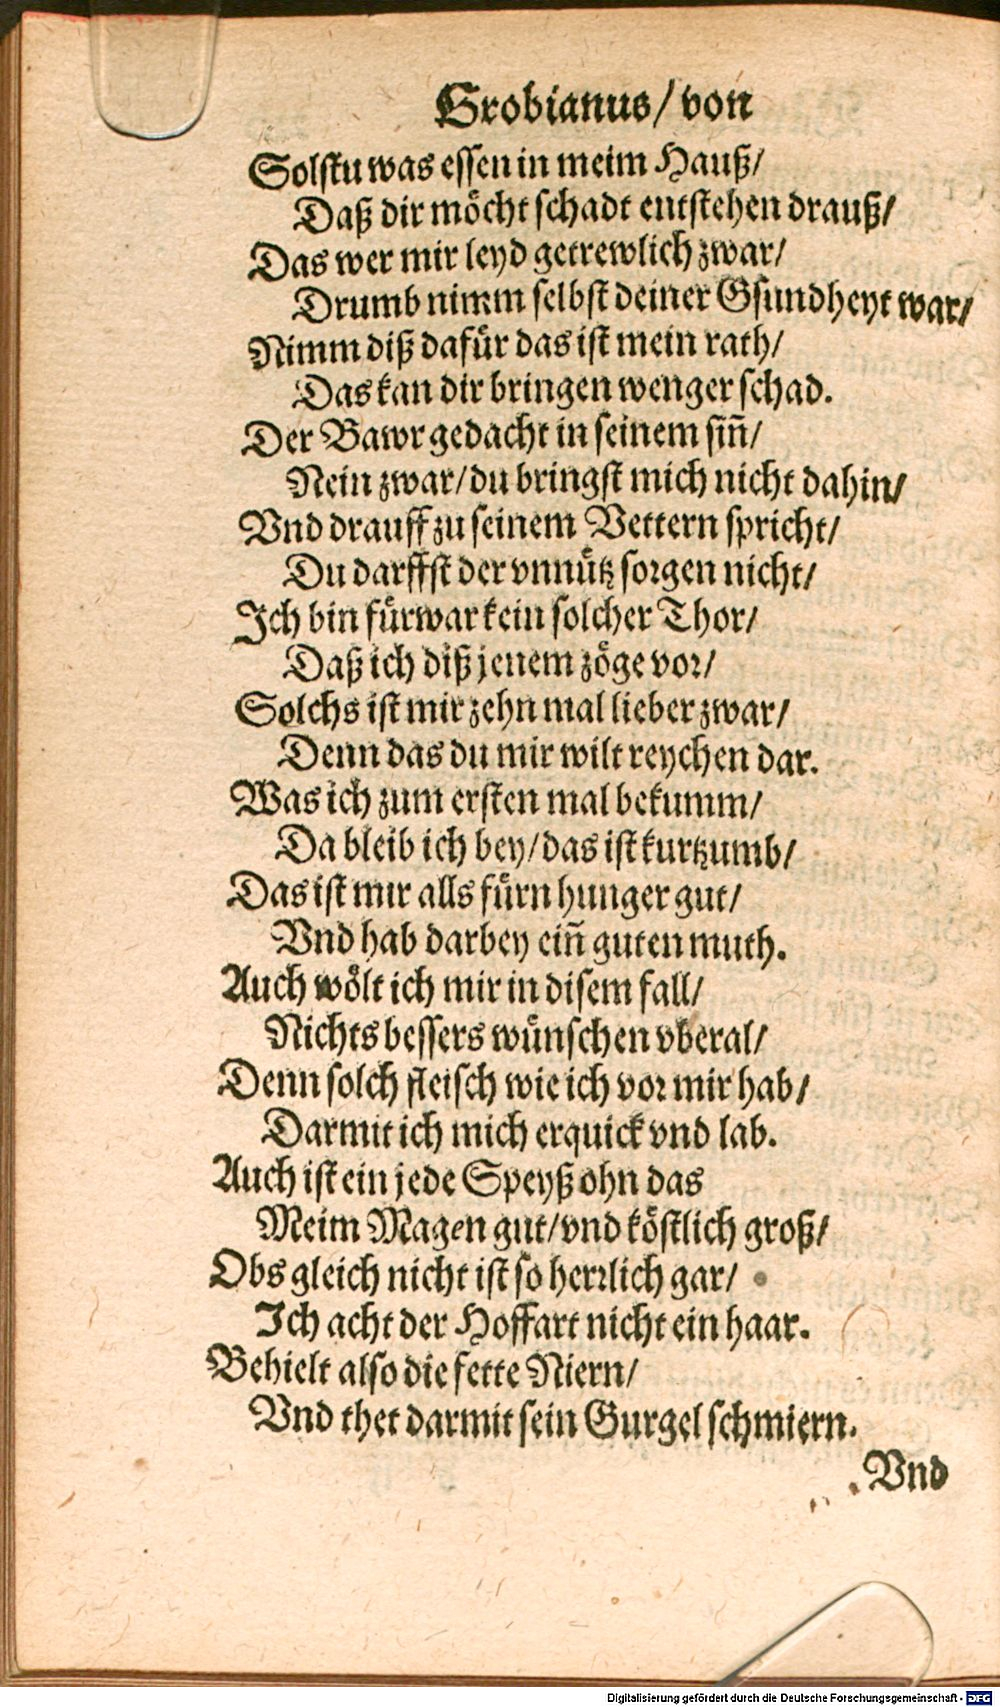 Grobianus/ von
Solstu was essen in meim Hauß/
Daß dir möcht schadt entstehen drauß/
Das wer mir leyd getrewlich zwar/
Drumb nimm selbst deiner Gsundheyt war/
Nimm diß dafür das ist mein rath/
Das kan dir bringen wenger schad.
Der Bawr gedacht in seinem siñ/
Nein zwar/ du bringst mich nicht dahin/
Vnd drauff zu seinem Vettern spricht/
Du darffst der vnnütz sorgen nicht/
Ich bin fürwar kein solcher Thor/
Daß ich diß jenem zöge vor/
Solchs ist mir zehn mal lieber zwar/
Denn das du mir wilt reychen dar.
Was ich zum ersten mal bekumm/
Da bleib ich bey/ das ist kurtzumb/
Das ist mir alls fürn hunger gut/
Vnd hab darbey eiñ guten muth.
Auch wölt ich mir in disem fall/
Nichts bessers wünschen vberal/
Denn solch fleisch wie ich vor mir hab/
Darmit ich mich erquick vnd lab.
Auch ist ein jede Speyß ohn das
Meim Magen gut/ vnd köstlich groß/
Obs gleich nicht ist so herrlich gar/
Ich acht der Hoffart nicht ein haar.
Behielt also die fette Niern/
Vnd thet darmit sein Gurgel schmiern.
Vnd
Digitalisierung gefördert durch die Deutsche Forschungsgemeinschaft - DFG